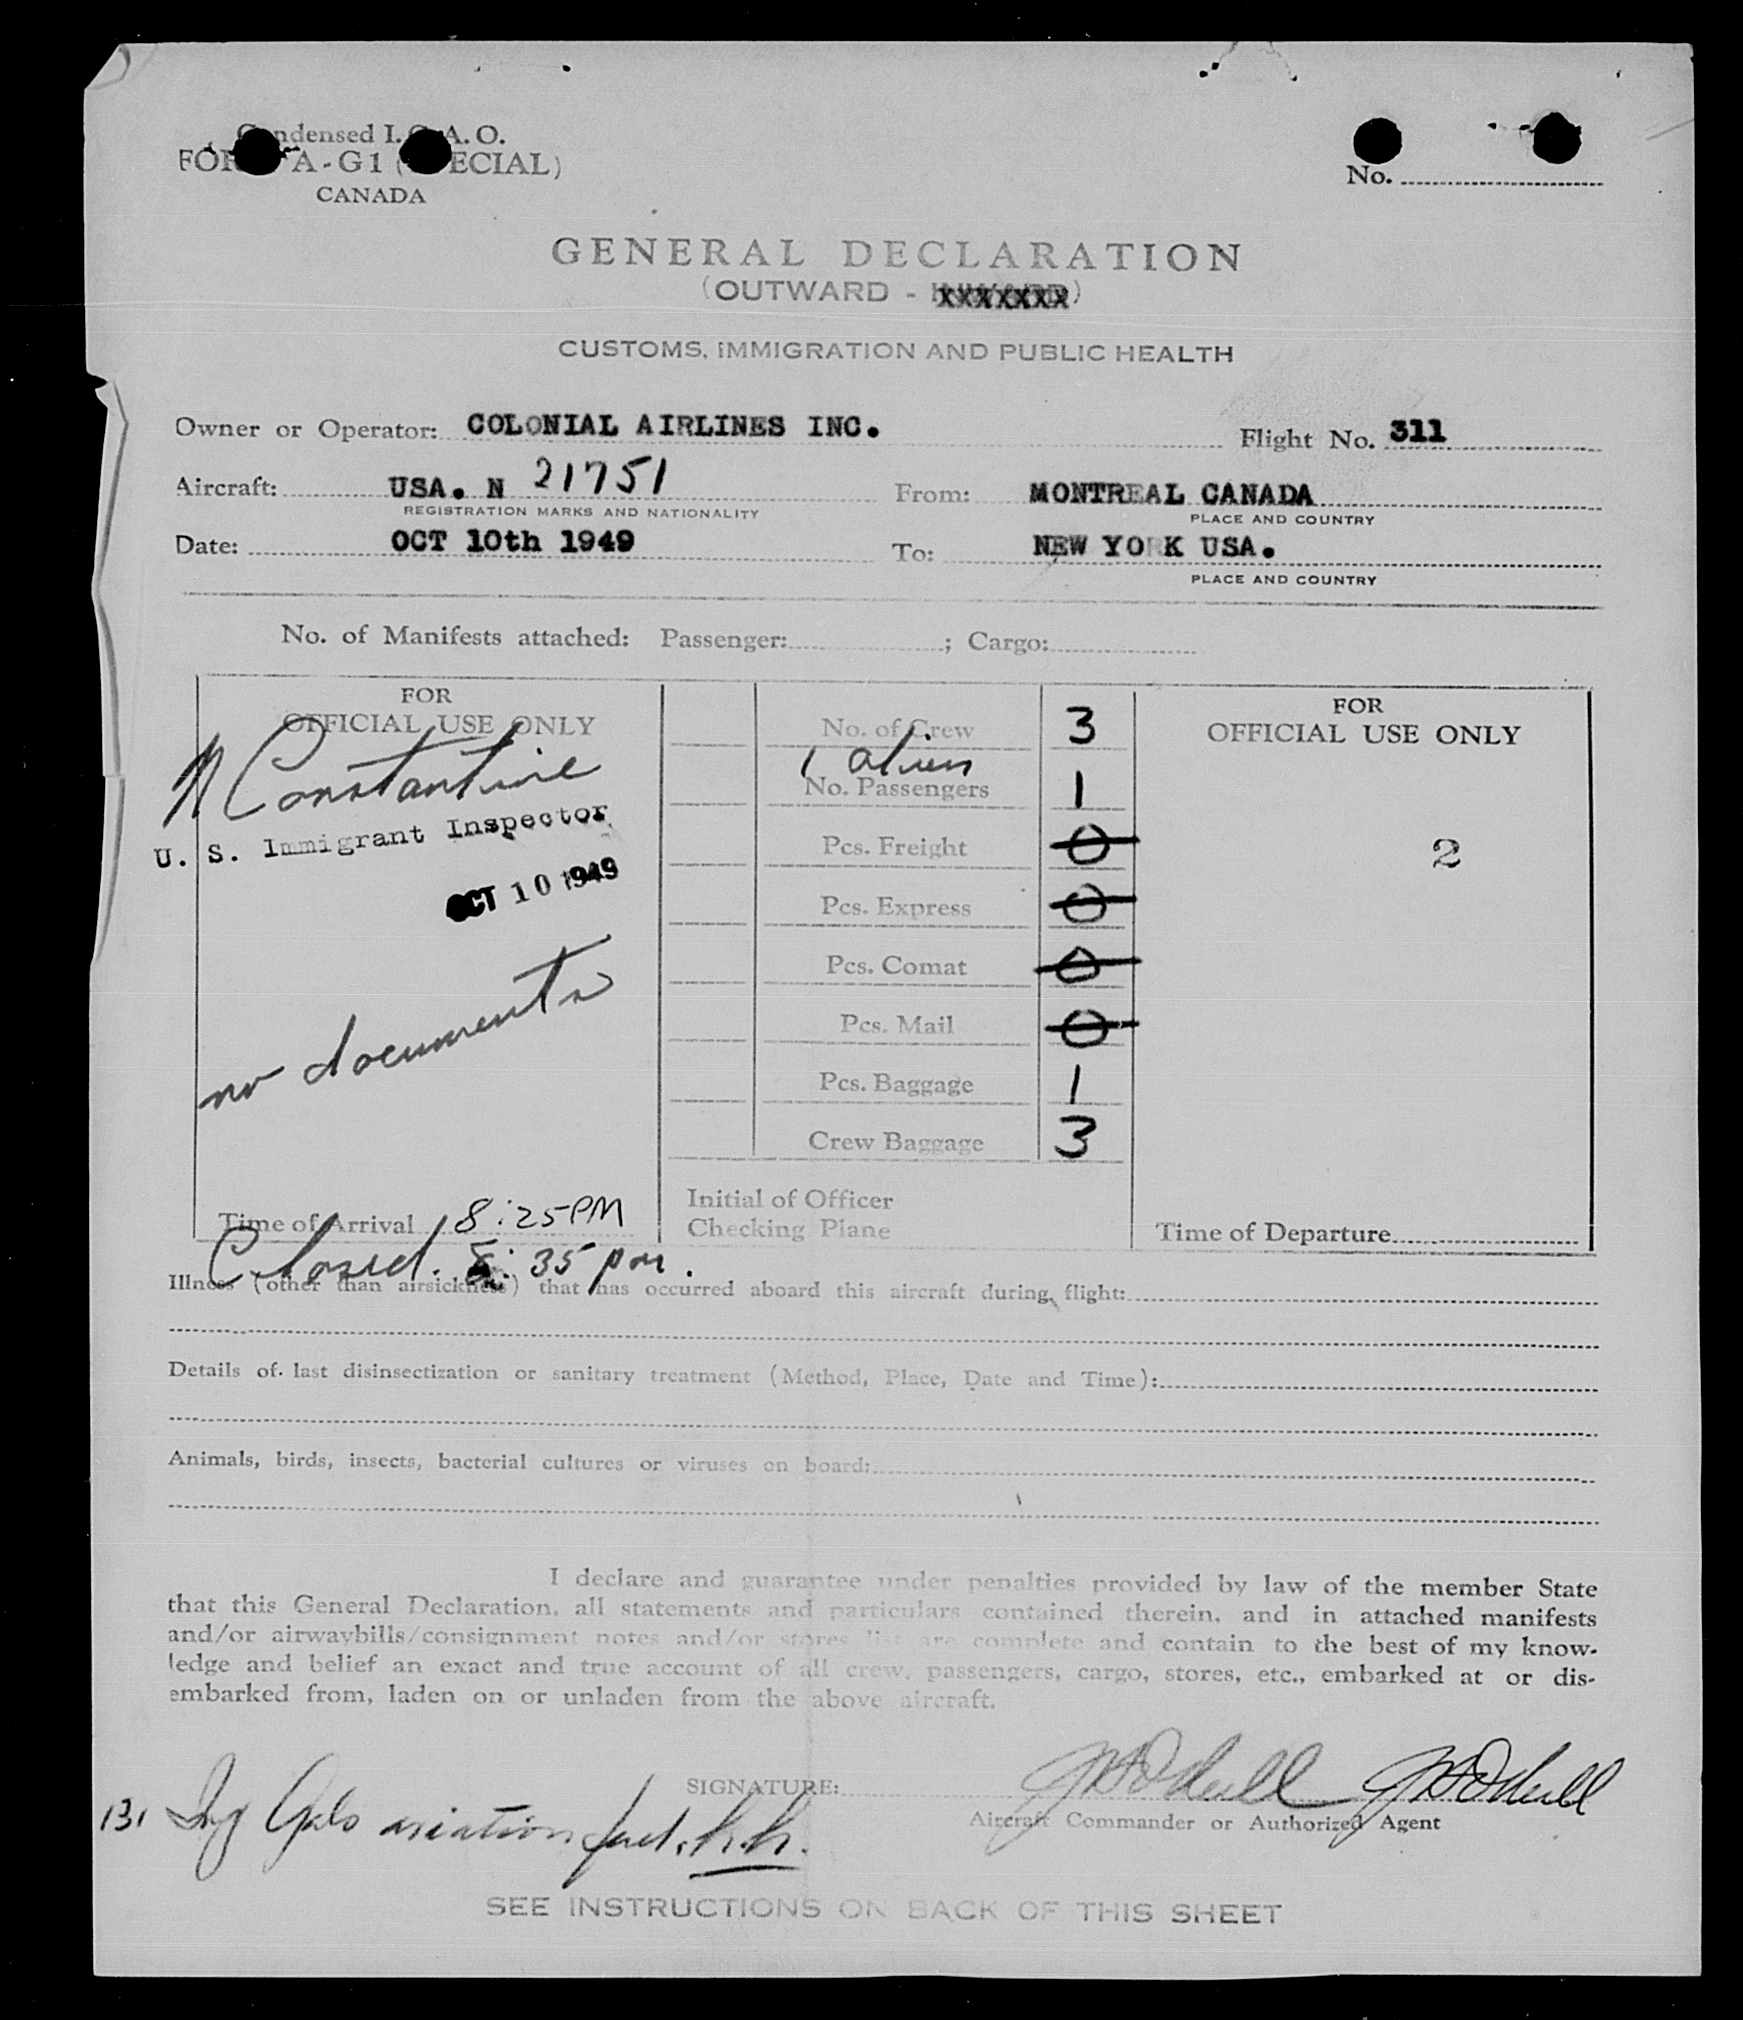 Condensed I.C.A.O.
FORM A-G1 (SPECIAL)
CANADA
No.
GENERAL DECLARATION
(OUTWARD - XXXXXXX)
CUSTOMS, IMMIGRATION AND PUBLIC HEALTH
Owner or Operator: COLONIAL AIRLINES INC. Flight No. 311
Aircraft: USA. N 21751 From: MONTREAL CANADA
REGISTRATION MARKS AND NATIONALITY PLACE AND COUNTRY
Date: OCT 10th 1949 To: NEW YORK USA.
PLACE AND COUNTRY
No. of Manifests attached: Passenger: ; Cargo:
FOR
OFFICIAL USE ONLY
N Constantine
U. S. Immigrant Inspector
OCT 10 1949
no documents
Time of Arrival 8:25 PM
Closed. 8:35 pm.
No. of Crew 3
1 alien
No. Passengers 1
Pcs. Freight 0
Pcs. Express 0
Pcs. Comat 0
Pcs. Mail 0
Pcs. Baggage 1
Crew Baggage 3
Initial of Officer
Checking Plane
FOR
OFFICIAL USE ONLY
2
Time of Departure
Illness (other than airsickness) that has occurred aboard this aircraft during flight:
Details of last disinsectization or sanitary treatment (Method, Place, Date and Time):
Animals, birds, insects, bacterial cultures or viruses on board:
I declare and guarantee under penalties provided by law of the member State
that this General Declaration, all statements and particulars contained therein, and in attached manifests
and/or airwaybills/consignment notes and/or stores list are complete and contain to the best of my know-
ledge and belief an exact and true account of all crew, passengers, cargo, stores, etc., embarked at or dis-
embarked from, laden on or unladen from the above aircraft.
SIGNATURE:
Aircraft Commander or Authorized Agent
131 Gals aviation fuel.
SEE INSTRUCTIONS ON BACK OF THIS SHEET